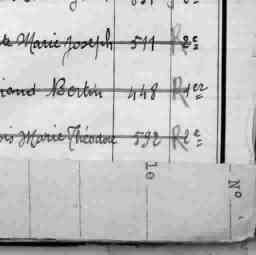 Marie Joseph 511 R 2e
Bertin 448 R 1er
Marie Théodore 592 R 2e
10
No